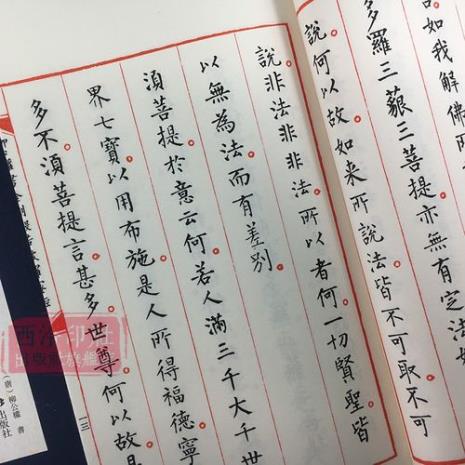 如我解佛所
多羅三藐三菩提亦無有定法如
說何以故如来所說法皆不可取不可
說非法非非法所以者何一切賢聖皆
以無為法而有差別
須菩提於意云何若人滿三千大千世
界七寶以用布施是人所得福德寧
多不須菩提言甚多世尊何以故是
一三
西泠印社
出版社旗艦
（唐）柳公權 書
出版社